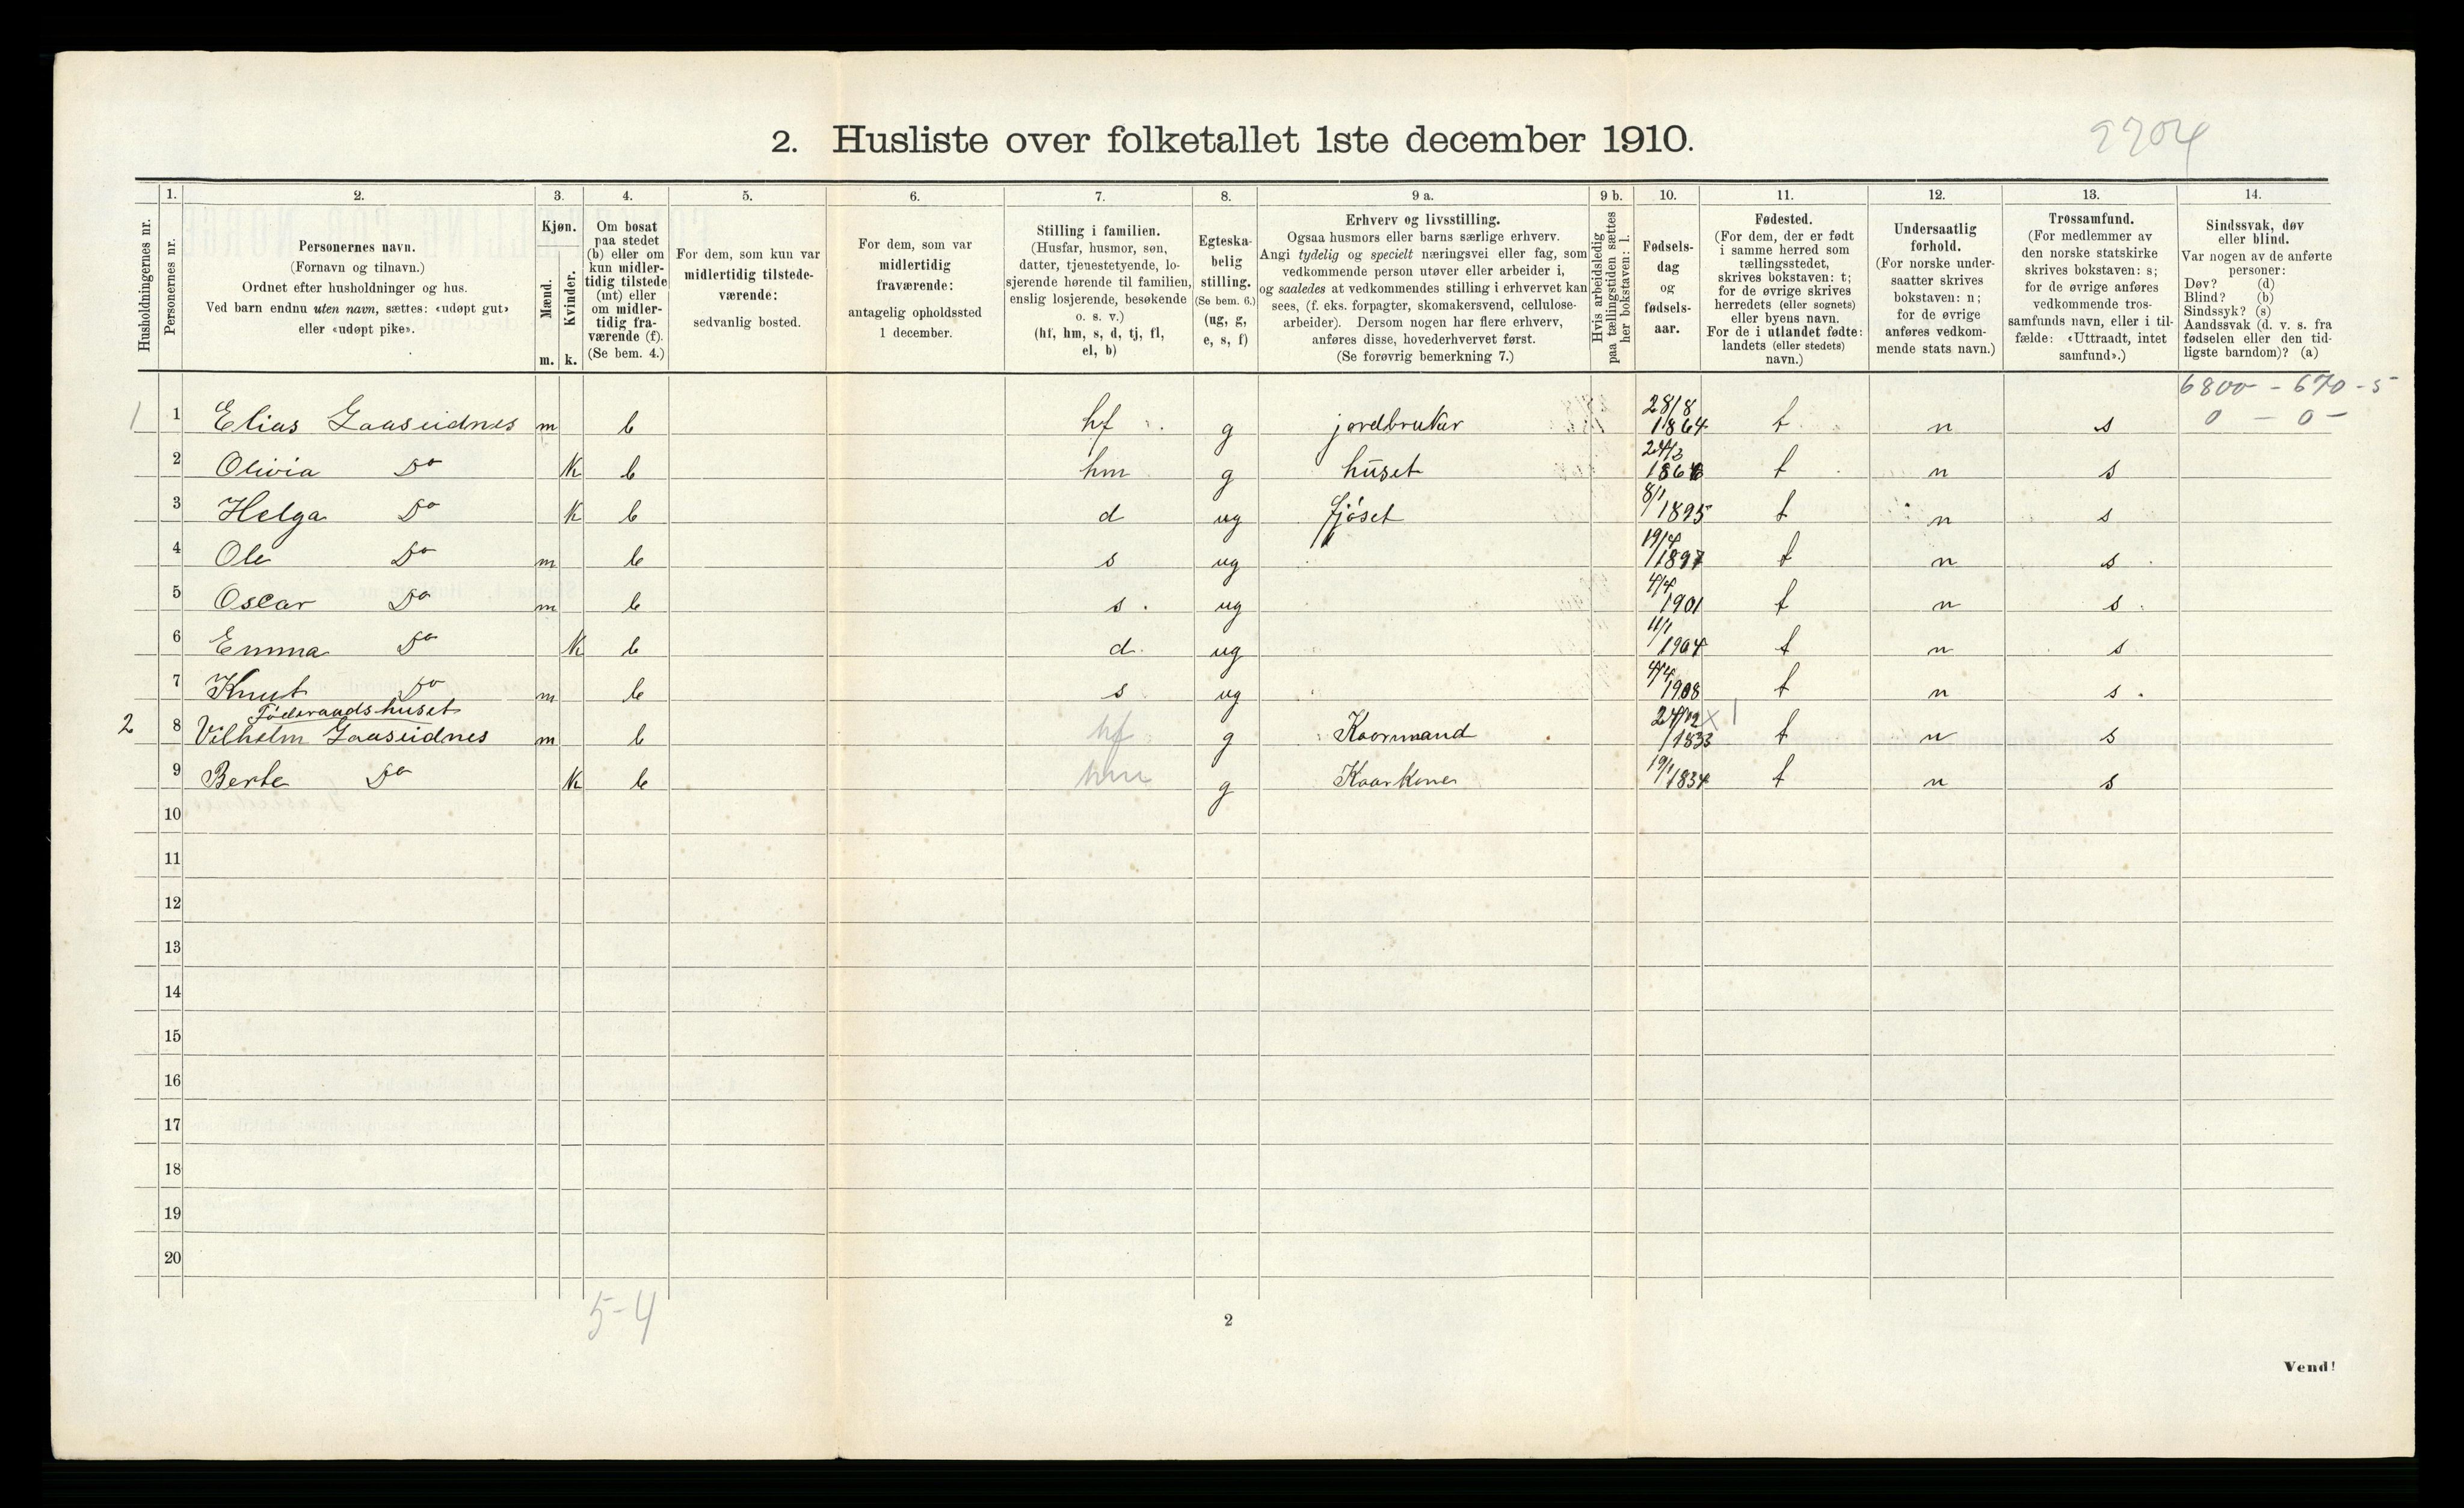 2. Husliste over folketallet 1ste december 1910.
2204
Husholdningernes nr.
1. Personernes nr.
2. Personernes navn.
(Fornavn og tilnavn.)
Ordnet efter husholdninger og hus.
Ved barn endnu uten navn, sættes: «udøpt gut»
eller «udøpt pike».
3. Kjøn.
Mænd. Kvinder.
m. k.
4. Om bosat
paa stedet
(b) eller om
kun midler-
tidig tilstede
(mt) eller
om midler-
tidig fra-
værende (f).
(Se bem. 4.)
5. For dem, som kun var
midlertidig tilstede-
værende:
sedvanlig bosted.
6. For dem, som var
midlertidig
fraværende:
antagelig opholdssted
1 december.
7. Stilling i familien.
(Husfar, husmor, søn,
datter, tjenestetyende, lo-
sjerende hørende til familien,
enslig losjerende, besøkende
o. s. v.)
(hf, hm, s, d, tj, fl,
el, b)
8. Egteska-
belig
stilling.
(Se bem. 6.)
(ug, g,
e, s, f)
9 a. Erhverv og livsstilling.
Ogsaa husmors eller barns særlige erhverv.
Angi tydelig og specielt næringsvei eller fag, som
vedkommende person utøver eller arbeider i,
og saaledes at vedkommendes stilling i erhvervet kan
sees, (f. eks. forpagter, skomakersvend, cellulose-
arbeider). Dersom nogen har flere erhverv,
anføres disse, hovederhvervet først.
(Se forøvrig bemerkning 7.)
9 b. Hvis arbeidsledig
paa tællingstiden sættes
her bokstaven: l.
10. Fødsels-
dag
og
fødsels-
aar.
11. Fødested.
(For dem, der er født
i samme herred som
tællingsstedet,
skrives bokstaven: t;
for de øvrige skrives
herredets (eller sognets)
eller byens navn.
For de i utlandet fødte:
landets (eller stedets)
navn.)
12. Undersaatlig
forhold.
(For norske under-
saatter skrives
bokstaven: n;
for de øvrige
anføres vedkom-
mende stats navn.)
13. Trossamfund.
(For medlemmer av
den norske statskirke
skrives bokstaven: s;
for de øvrige anføres
vedkommende tros-
samfunds navn, eller i til-
fælde: «Uttraadt, intet
samfund».)
14. Sindssvak, døv
eller blind.
Var nogen av de anførte
personer:
Døv? (d)
Blind? (b)
Sindssyk? (s)
Aandssvak (d. v. s. fra
fødselen eller den tid-
ligste barndom)? (a)
6800 - 670 - 5
0 - 0 -
1 1 Elias Gaaseidnes m b hf g jordbruker 28/8 1864 t n s
2 Olivia Do k b hm g huset t n s
3 Helga Do k b d ug fjøset 8/1 1895 t n s
4 Ole Do m b s ug 19/4 1897 t n s
5 Oscar Do m b s ug 4/4 1901 t n s
6 Emma Do k b d ug 11/1 1904 t n s
7 Knut Do m b s ug 4/4 1908 t n s
Föderaadshuset
2 8 Vilhelm Gaaseidnes m b hf g Kaarmand 24/12 1833 x 1 t n s
9 Berte Do k b hm g Kaarkone 19/1 1834 t n s
10
11
12
13
14
15
16
17
18
19
20
5-4
2
Vend!